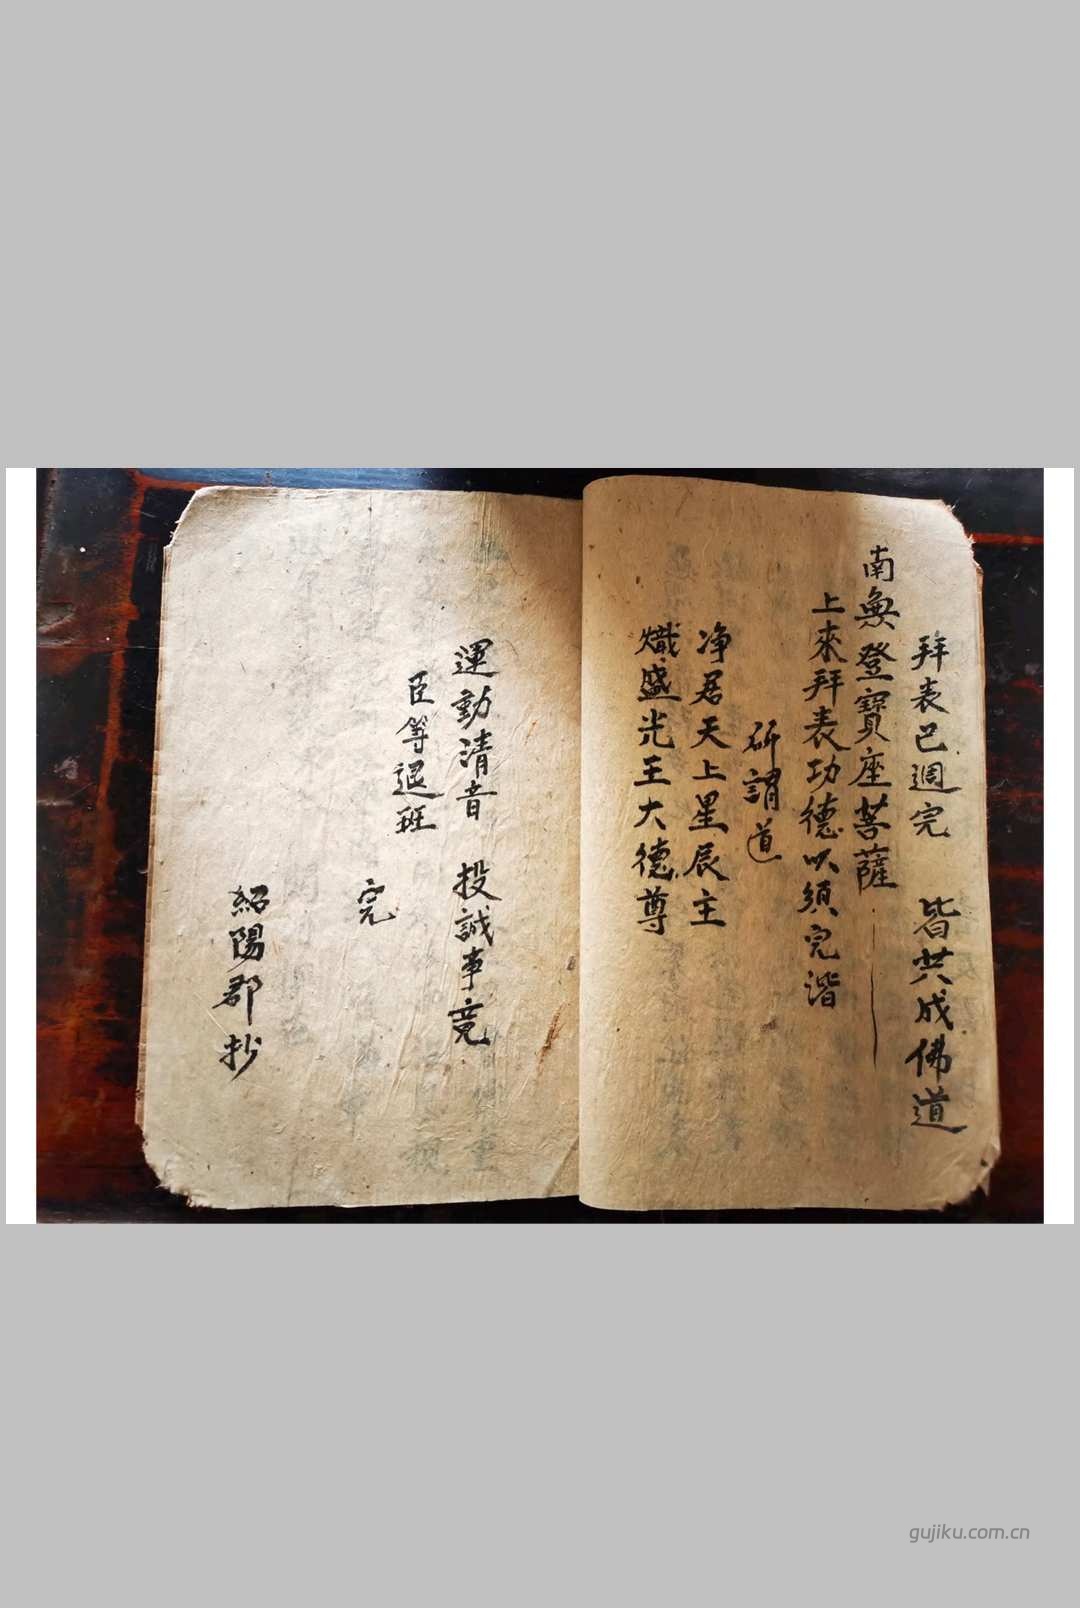 拜表已週完　皆共成佛道
南無登寶座菩薩
上來拜表功德以須完諧
所謂道
净居天上星辰主
熾盛光王大德尊
運動清音　投誠事竟
臣等退班
完
紹陽郡抄
gujiku.com.cn